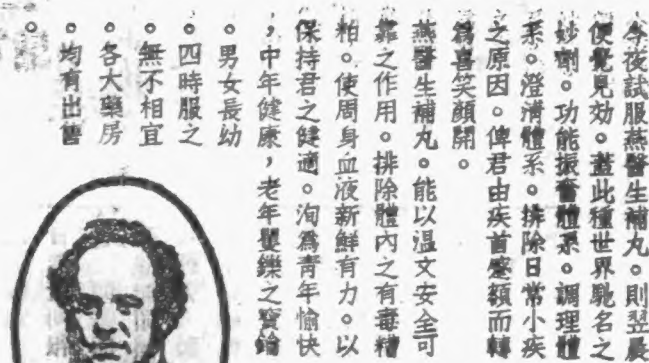 今夜試服燕醫生補丸。則翌晨
便覺見効。蓋此種世界馳名之
妙劑。功能振奮體系。調理體
系。澄清體系。排除日常小疾
之原因。俾君由疾首蹙額而轉
為喜笑顏開。
燕醫生補丸。能以温文安全可
靠之作用。排除體內之有毒糟
粕。使周身血液新鮮有力。以
保持君之健適。洵為青年愉快
,中年健康,老年矍鑠之寶鑰
。男女長幼
。四時服之
。無不相宜
。各大藥房
。均有出售
。